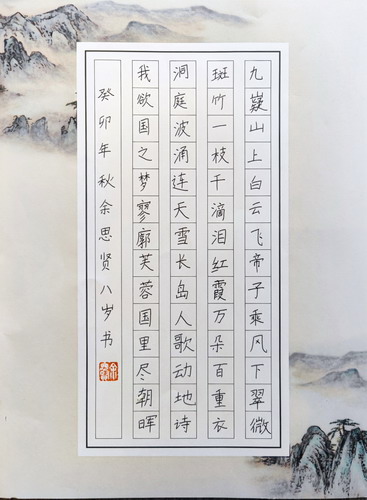 九嶷山上白云飞帝子乘风下翠微
斑竹一枝千滴泪红霞万朵百重衣
洞庭波涌连天雪长岛人歌动地诗
我欲国之梦寥廓芙蓉国里尽朝晖
癸卯年秋余思贤八岁书